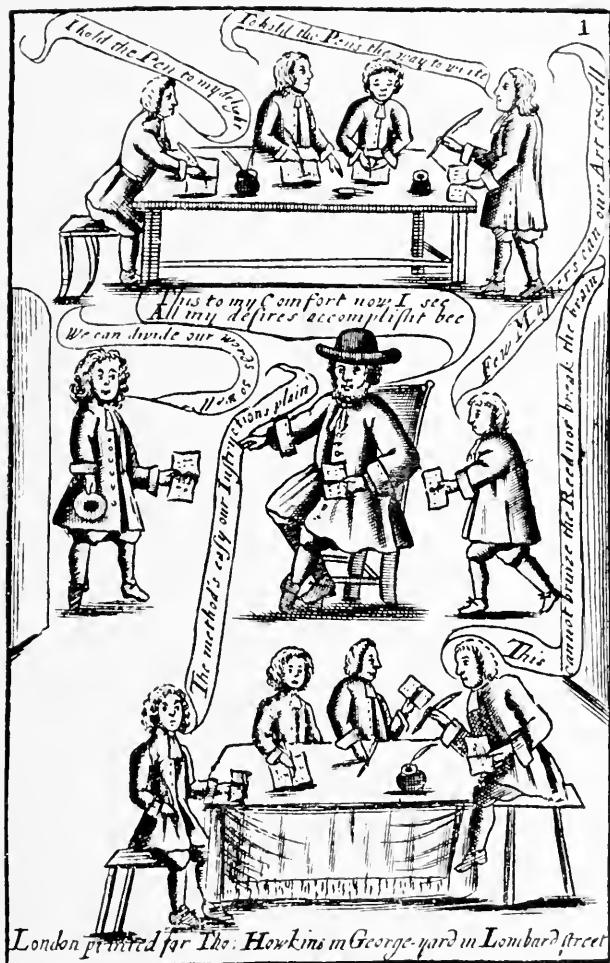 1
I hold the Pen to my delight
To hold the Pen's the way to write
Few Masters can our Art excell
This to my Comfort now I see
All my desires accomplisht bee
We can divide our words
so well
The method's easy our Instructions plain
This cannot bruize the Reed nor break the brain
London printed for Tho: Howkins in George-yard in Lombard street